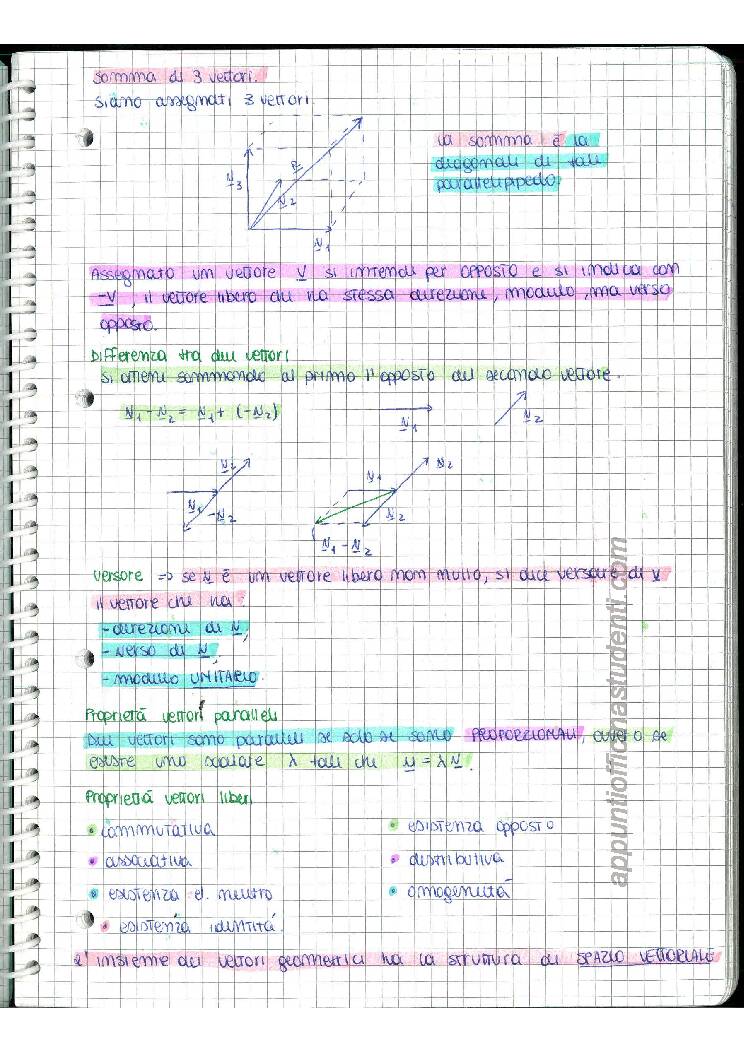 Somma di 3 vettori.
Siano assegnati 3 vettori.
La somma è la
diagonale di tale
parallelepipedo.
R
v3
v2
v1
Assegnato un vettore v si intende per OPPOSTO e si indica con
-v, il vettore libero che ha stessa direzione, modulo, ma verso
opposto.
Differenza tra due vettori
Si ottiene sommando al primo l'opposto del secondo vettore.
v1 - v2 = v1 + (-v2)
v1
v2
v2
v1
-v2
v1
v2
v2
v1 - v2
Versore => se v è un vettore libero non nullo, si dice versore di v
il vettore che ha:
- direzione di v,
- verso di v,
- modulo UNITARIO.
Proprietà vettori paralleli
Due vettori sono paralleli se solo se sono PROPORZIONALI, ovvero se
esiste uno scalare λ tale che u = λv.
Proprietà vettori liberi
• commutativa
• associativa
• esistenza el. neutro
• esistenza identità.
• esistenza opposto
• distributiva
• omogeneità
L'insieme dei vettori geometrici ha la struttura di SPAZIO VETTORIALE
appuntiofficinastudenti.com